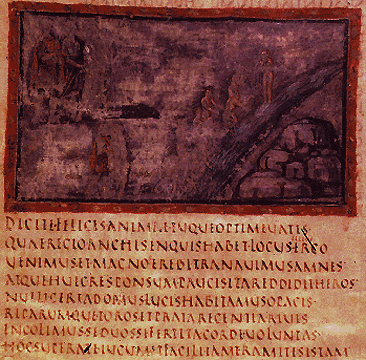 DICITEFELICESANIMAETUQUEOPTIMEVATES
QUAEREGIOANCHISENQUISHABETLOCUSERGO
VENIMUSETMAGNOSEREBITRANAVIMUSAMNES
ATQUEHUICRESPONSUMPAUCISITAREDDIDITHEROS
NULLICERTADOMUSLUCISHABITAMUSOPACIS
RIPARUMQUETOROSETPRATARECENTIARIVIS
INCOLIMUSSEDUOSSIFERTITACORDEVOLUNTAS
HOCSUPERATEIUGUMETFACILIIAMTRAMITESISTAM